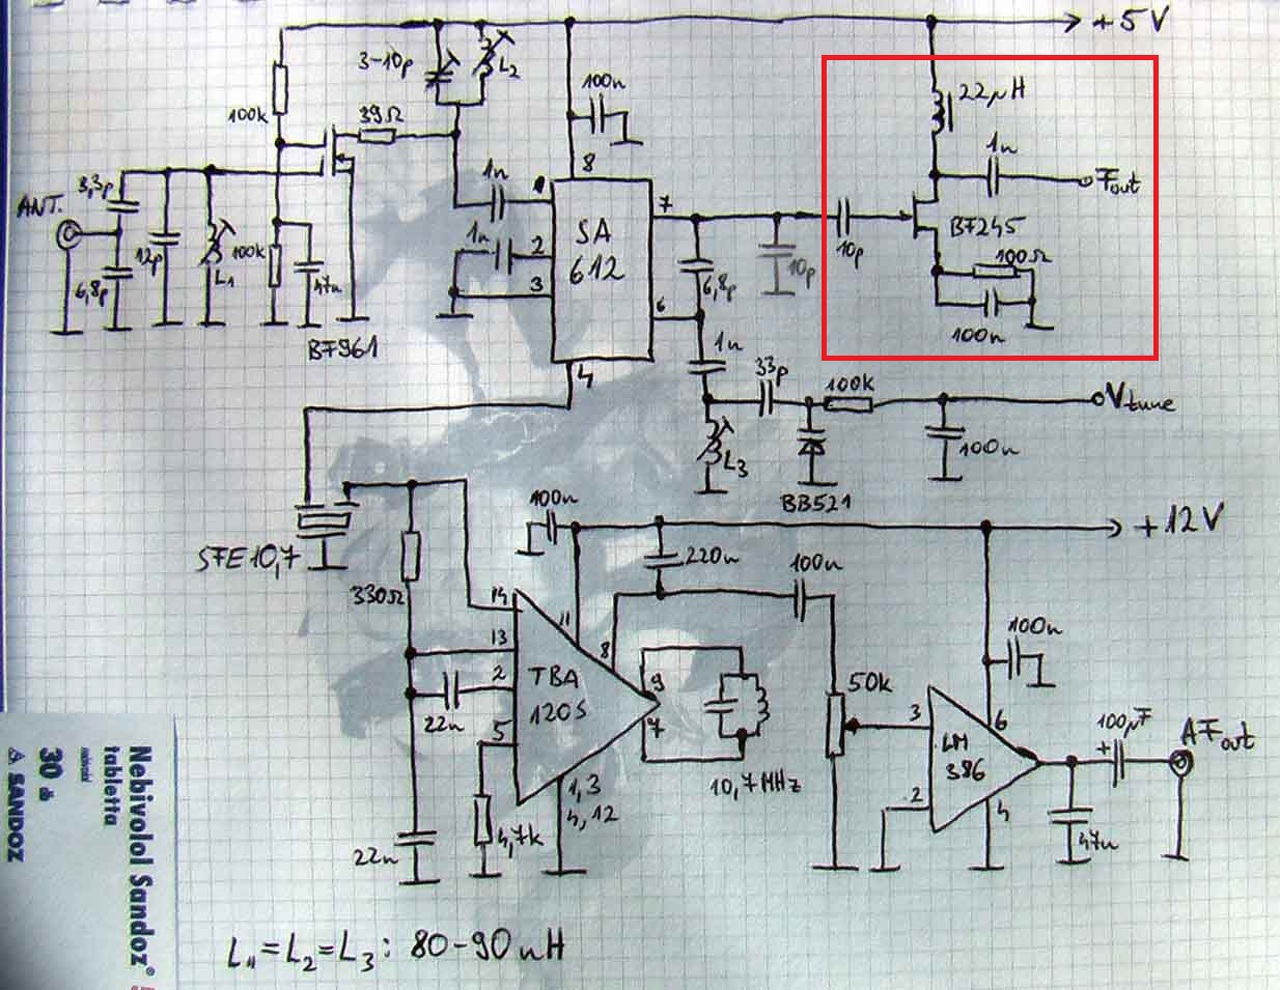 +5V
3-10p
L2
100n
22µH
100k
39Ω
1n
8
1n
Fout
3,3p
ANT.
7
SA
612
BF245
12p
L1
100k
1n
2
10p
10p
100Ω
6,8p
47n
3
6,8p
6
100n
BF961
1n
4
33p
100k
Vtune
L3
100n
BB521
100n
+12V
SFE10,7
220n
100n
330Ω
14
11
13
8
100n
2
TBA
120S
9
50k
22n
5
7
3
6
100µF
+
AFout
LM
386
10,7MHz
1,3
4,12
2
4
4,7k
47n
22n
L1=L2=L3: 80-90nH
Nebivolol Sandoz®
tabletta
30 db
SANDOZ